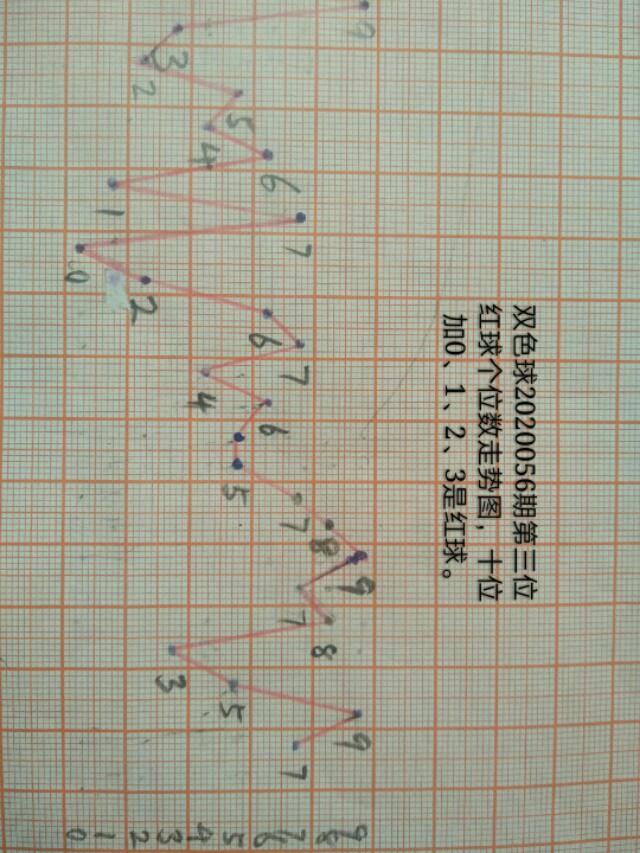 双色球2020056期第三位
红球个位数走势图，十位
加0、1、2、3是红球。
9 3 2 5 4 6 1 7 0 2 6 7 4 6 5 7 8 9 7 8 3 5 9 7
9
8
7
6
5
4
3
2
1
0